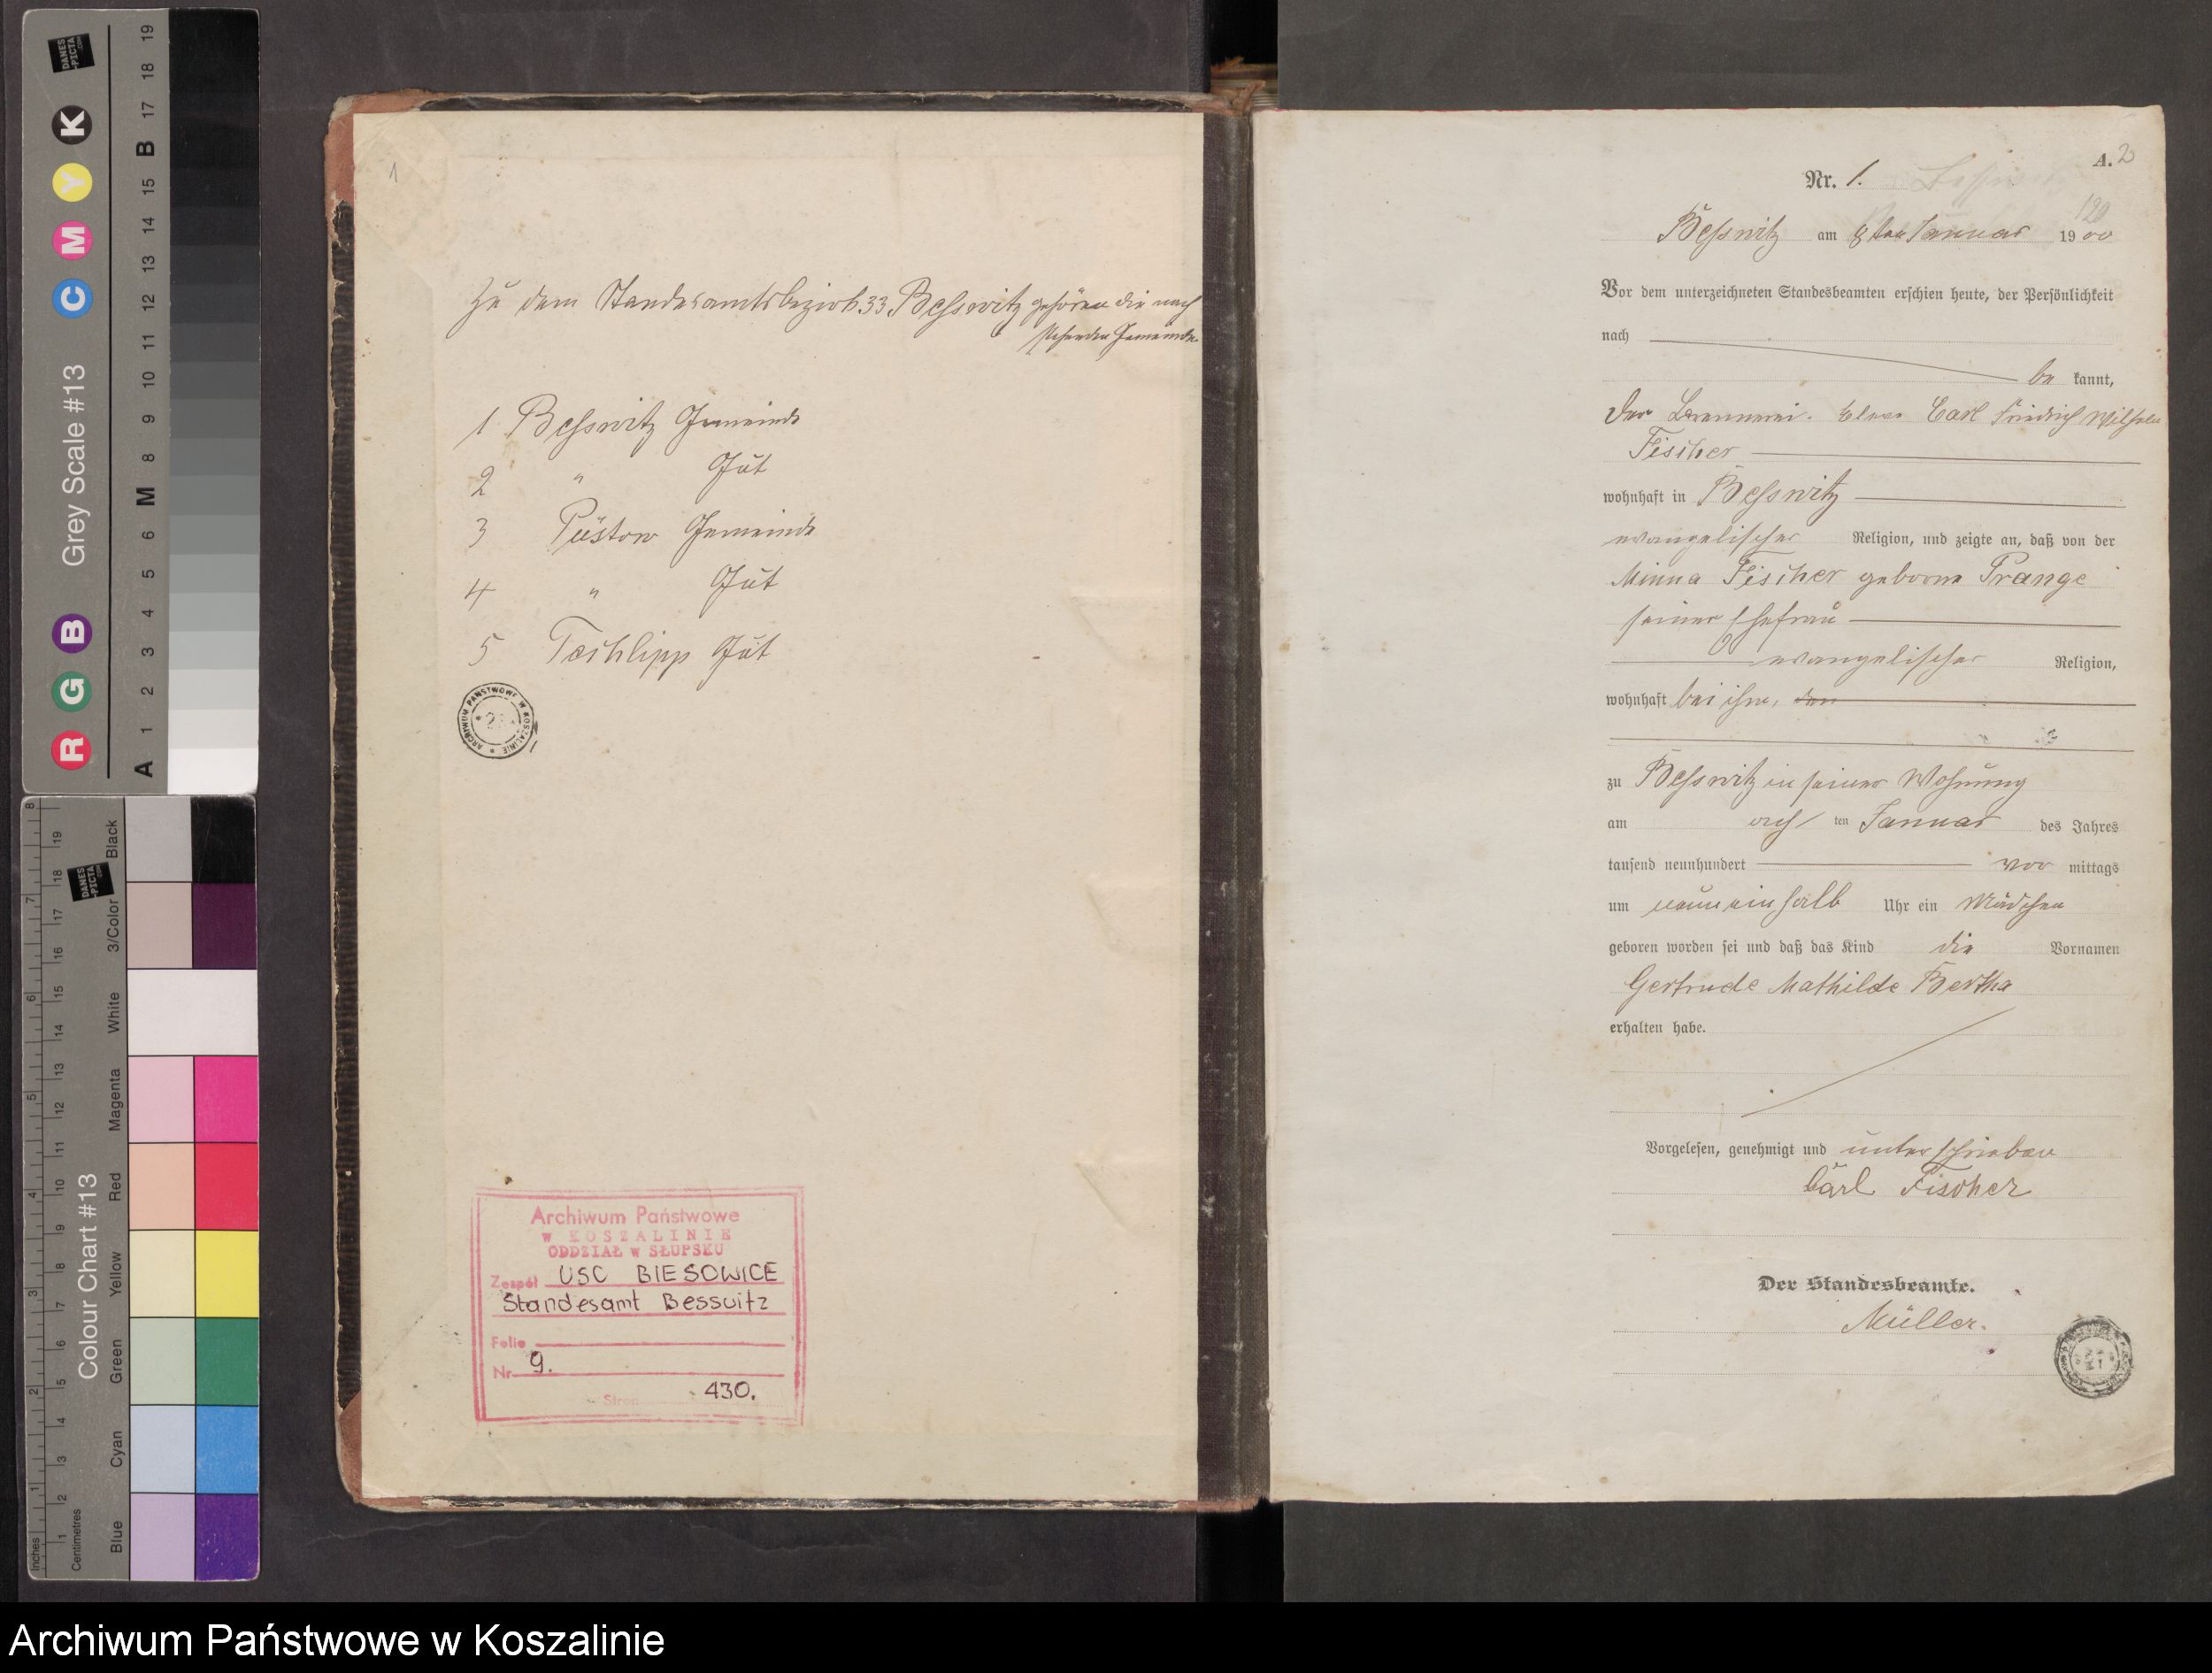 1
Zu dem Standesamtsbezirk 33 Besswitz gehören die nach
stehenden Gemeinden
1 Besswitz Gemeinde
2 " Gut
3 Püstow Gemeinde
4 " Gut
5 Techlipp Gut
ARCHIWUM PAŃSTWOWE W KOSZALINIE
Archiwum Państwowe
W KOSZALINIE
ODDZIAŁ w SŁUPSKU
Zespół USC BIESOWICE
Standesamt Besswitz
Folio
Nr 9.
Stron 430.
A. 2
Nr. 1.
Besswitz am 8ten Januar 1900
Vor dem unterzeichneten Standesbeamten erschien heute, der Persönlichkeit
nach
be kannt,
der Brennerei-Eleve Carl Friedrich Wilhelm
Fischer
wohnhaft in Besswitz
evangelischer Religion, und zeigte an, daß von der
Minna Fischer geborne Prange
seiner Ehefrau
evangelischer Religion,
wohnhaft bei ihm,
zu Besswitz in seiner Wohnung
am acht ten Januar des Jahres
tausend neunhundert vor mittags
um neuneinhalb Uhr ein Mädchen
geboren worden sei und daß das Kind die Vornamen
Gertrude Mathilde Bertha
erhalten habe.
Vorgelesen, genehmigt und unterschrieben
Carl Fischer
Der Standesbeamte.
Müller.
Grey Scale #13
R G B C M Y K
A 1 2 3 4 5 6 M 8 9 10 11 12 13 14 15 B 17 18 19
DANES-PICTA.COM
Colour Chart #13
Blue Cyan Green Yellow Red Magenta White 3/Color Black
Inches 1 2 3 4 5 6 7 8
Centimetres 1 2 3 4 5 6 7 8 9 10 11 12 13 14 15 16 17 18 19
DANES-PICTA.COM
Archiwum Państwowe w Koszalinie